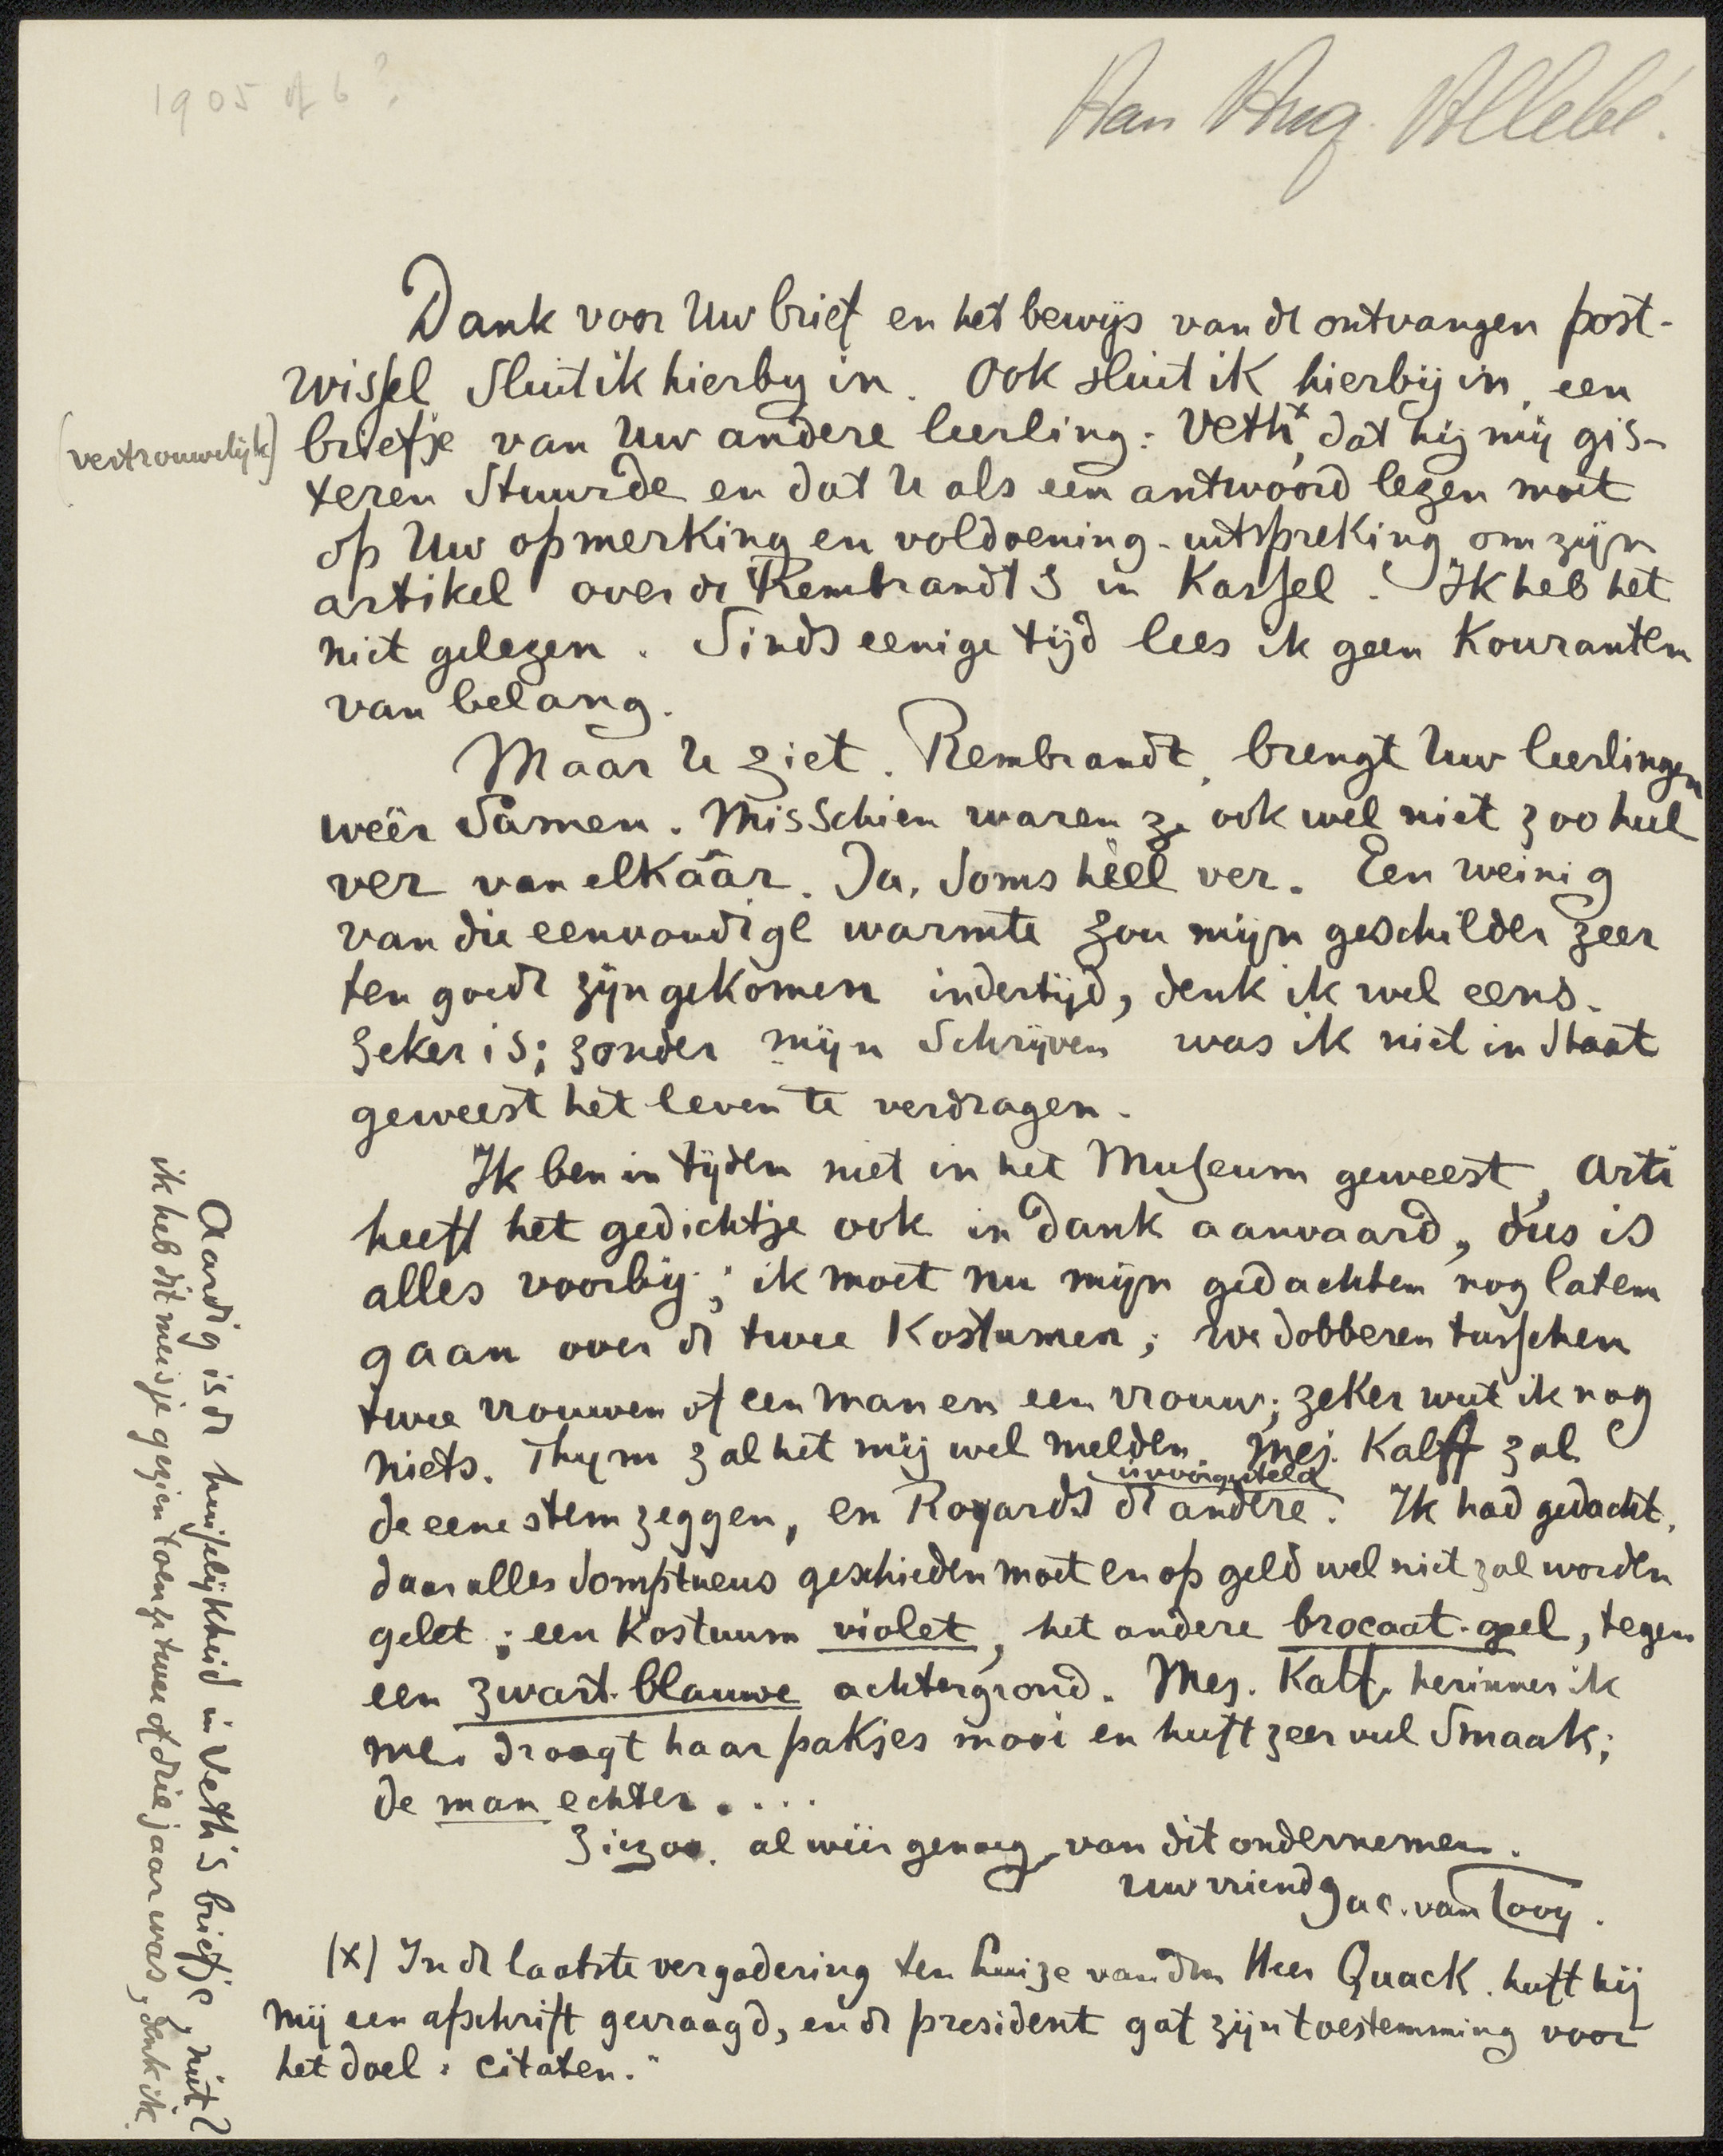 1905 of 6?
Aan Aug. Allebé.
Dank voor Uw brief en het bewijs van de ontvangen post-
wissel sluit ik hierby in. Ook sluit ik hierbij in, een
(vertrouwelijk)
briefje van Uw andere leerling: Veth x, dat hij mij gis-
teren stuurde en dat U als een antwoord lezen moet
op Uw opmerking en voldoening-uitspreking om zijn
artikel over de Rembrandts in Kassel. Ik heb het
niet gelezen. Sinds eenige tijd lees ik geen Kouranten
van belang.
Maar U ziet. Rembrandt, brengt Uw leerlingen
weêr samen. Misschien waren ze ook wel niet zoo heel
ver van elkâar. Ja, soms hèèl ver. Een weinig
van die eenvoudige warmte zou mijn geschilder zeer
ten goede zijn gekomen indertijd, denk ik wel eens.
Zeker is; zonder mijn schrijven was ik niet in staat
geweest het leven te verdragen.
Ik ben in tijden niet in het Museum geweest, Arti
heeft het gedichtje ook in dank aanvaard, dus is
alles voorbij; ik moet nu mijn gedachten nog laten
gaan over de twee Kostumen; we dobberen tusschen
twee vrouwen of een man en een vrouw; zeker weet ik nog
niets. Thym zal het mij wel melden. Mej. Kalff zal
de eene stem zeggen, en Royards de andere.
Ik had gedacht,
daar alles somptueus geschieden moet en op geld wel niet zal worden
gelet; een Kostuum violet, het andere brocaat-geel, tegen
een zwart-blauwe achtergrond. Mej. Kalff, herinner ik
me, draagt haar pakjes mooi en heeft zeer veel smaak;
de man echter . . . .
Ziezoo. al wéér genoeg van dit ondernemen.
Uw vriend Jac. van Looy.
(x) In de laatste vergadering ten huize van den Heer Quack. heeft hij
mij een afschrift gevraagd, en de president gaf zijn toestemming voor
het doel: citaten."
Aardig is de huiselijkheid in Veth's briefje, niet?
ik heb dit meisje gezien toen ze twee of drie jaar was, denk ik.